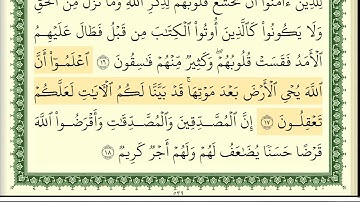 لِلَّذِينَ ءَامَنُوٓا۟ أَن تَخْشَعَ قُلُوبُهُمْ لِذِكْرِ ٱللَّهِ وَمَا نَزَلَ مِنَ ٱلْحَقِّ
وَلَا يَكُونُوا۟ كَٱلَّذِينَ أُوتُوا۟ ٱلْكِتَٰبَ مِن قَبْلُ فَطَالَ عَلَيْهِمُ
ٱلْأَمَدُ فَقَسَتْ قُلُوبُهُمْ وَكَثِيرٌ مِّنْهُمْ فَٰسِقُونَ ١٦ ٱعْلَمُوٓا۟ أَنَّ
ٱللَّهَ يُحْىِ ٱلْأَرْضَ بَعْدَ مَوْتِهَا ۚ قَدْ بَيَّنَّا لَكُمُ ٱلْءَايَٰتِ لَعَلَّكُمْ
تَعْقِلُونَ ١٧ إِنَّ ٱلْمُصَّدِّقِينَ وَٱلْمُصَّدِّقَٰتِ وَأَقْرَضُوا۟ ٱللَّهَ
قَرْضًا حَسَنًا يُضَٰعَفُ لَهُمْ وَلَهُمْ أَجْرٌ كَرِيمٌ ١٨
٥٣٩